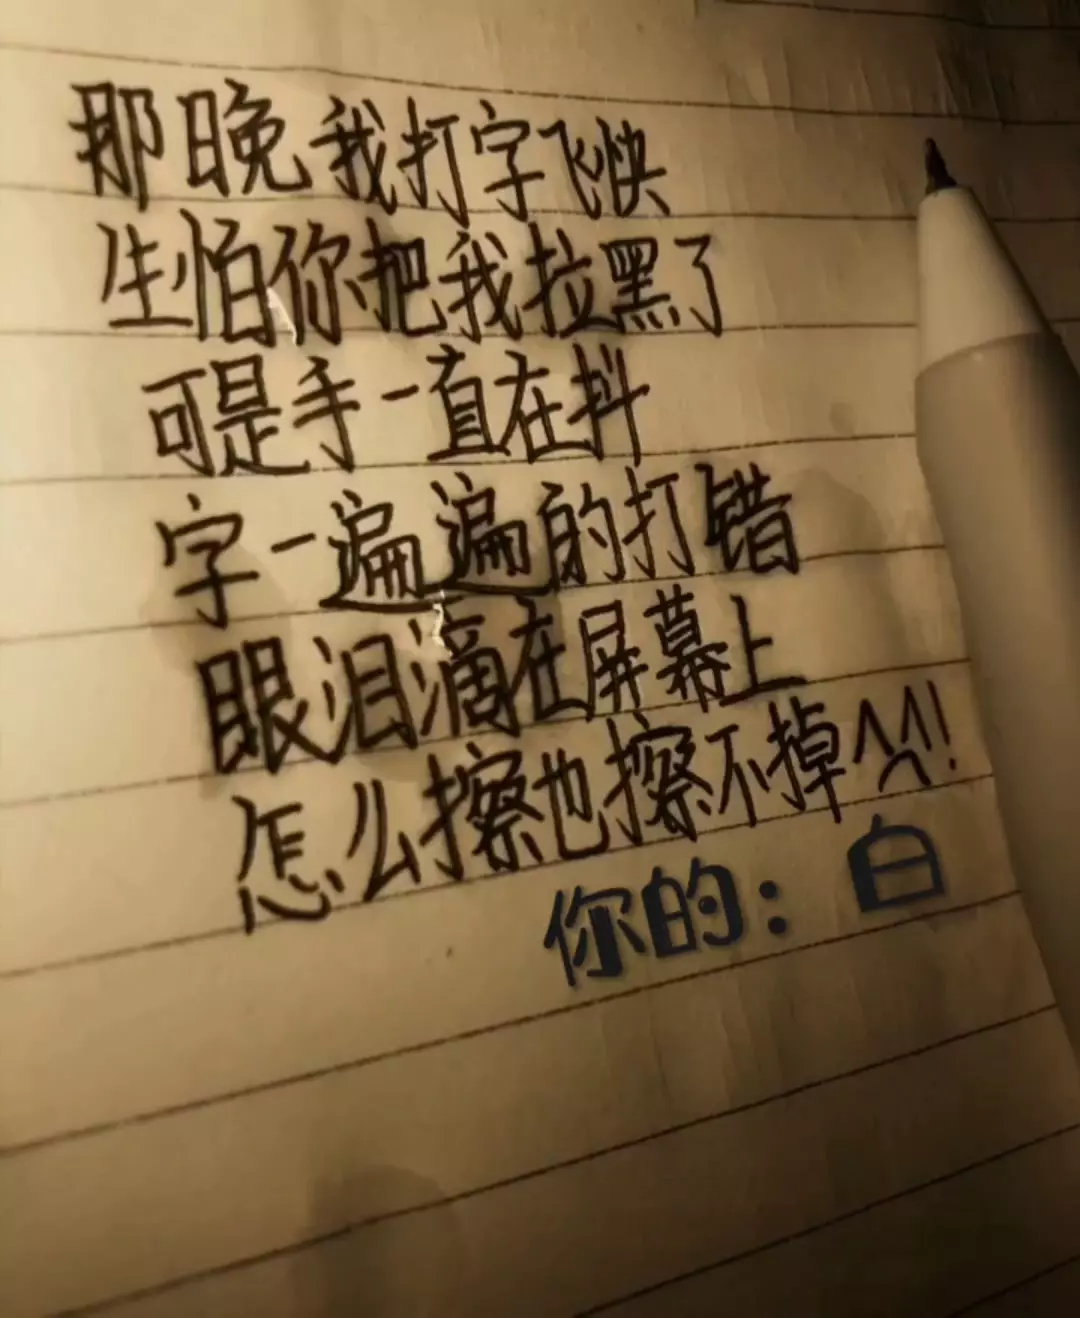 那晚我打字飞快
生怕你把我拉黑了
可是手一直在抖
字一遍遍的打错
眼泪滴在屏幕上
怎么擦也擦不掉^^!
你的：白